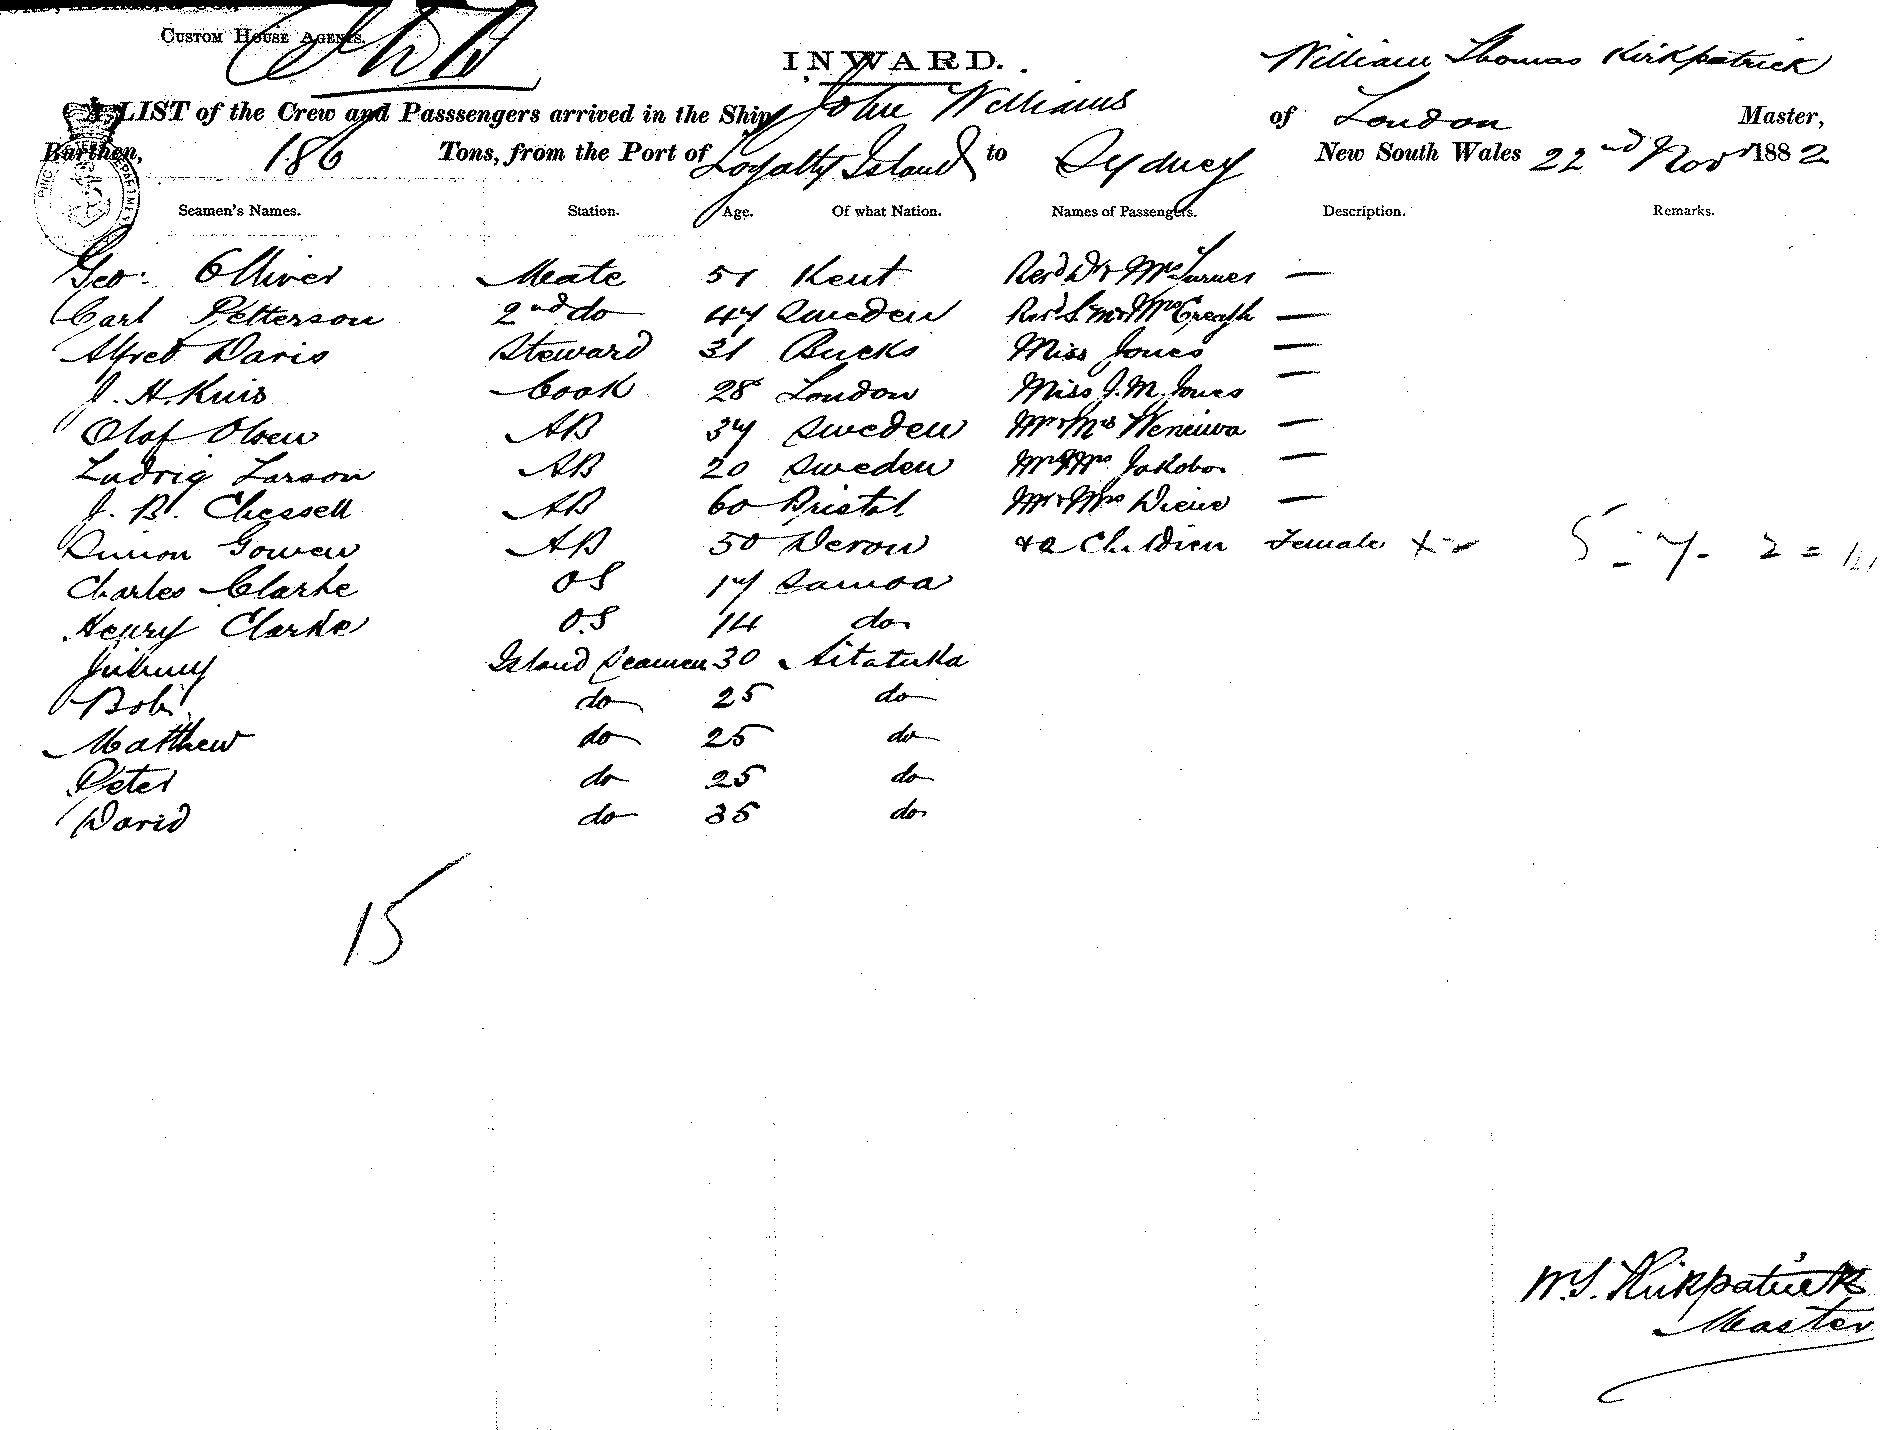 CUSTOM HOUSE AGENTS.
INWARD.
William Thomas Kirkpatrick
A LIST of the Crew and Passsengers arrived in the Ship John Williams of London Master,
Burthen, 186 Tons, from the Port of Loyalty Island to Sydney New South Wales 22nd Novr 1882
Seamen's Names. Station. Age. Of what Nation. Names of Passengers. Description. Remarks.
Geo: Olliver Mate 51 Kent Revd Dr & Mrs Turner —
Carl Petterson 2nd do 47 Sweden Revd S. Mr & Mrs Creagh —
Alfred Davis Steward 31 Bucks Miss Jones —
J. H. Kuis Cook 28 London Miss J. M. Jones —
Olaf Olsen AB 37 Sweden Mr & Mrs —
Ludvig Larson AB 20 Sweden Mr & Mrs —
J. B. Chessell AB 60 Bristol Mr & Mrs —
Simon Gowen AB 50 Devon & a Children Female 5 - 7 - 2 =
Charles Clarke OS 17 Samoa
Henry Clarke O.S 14 do
Johnny Island Seamen 30 Aitutaka
Bob do 25 do
Matthew do 25 do
Peter do 25 do
David do 35 do
15
W. T. Kirkpatrick
Master